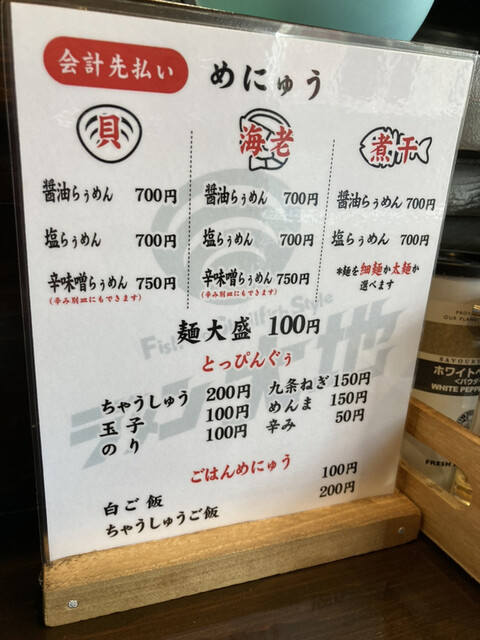 会計先払い
めにゅう
貝
醤油らぅめん 700円
塩らぅめん 700円
辛味噌らぅめん 750円
(辛み別皿にもできます)
海老
醤油らぅめん 700円
塩らぅめん 700円
辛味噌らぅめん 750円
(辛み別皿にもできます)
煮干
醤油らぅめん 700円
塩らぅめん 700円
*麺を細麺か太麺か
選べます
麺大盛 100円
とっぴんぐぅ
ちゃうしゅう 200円
玉子 100円
のり 100円
九条ねぎ 150円
めんま 150円
辛み 50円
ごはんめにゅう
白ご飯 100円
ちゃうしゅうご飯 200円
Fish
Shellfish Style
OUR FLA
SAVOUR
ホワイトペ
<パウダ
WHITE PEPPE
FRESH